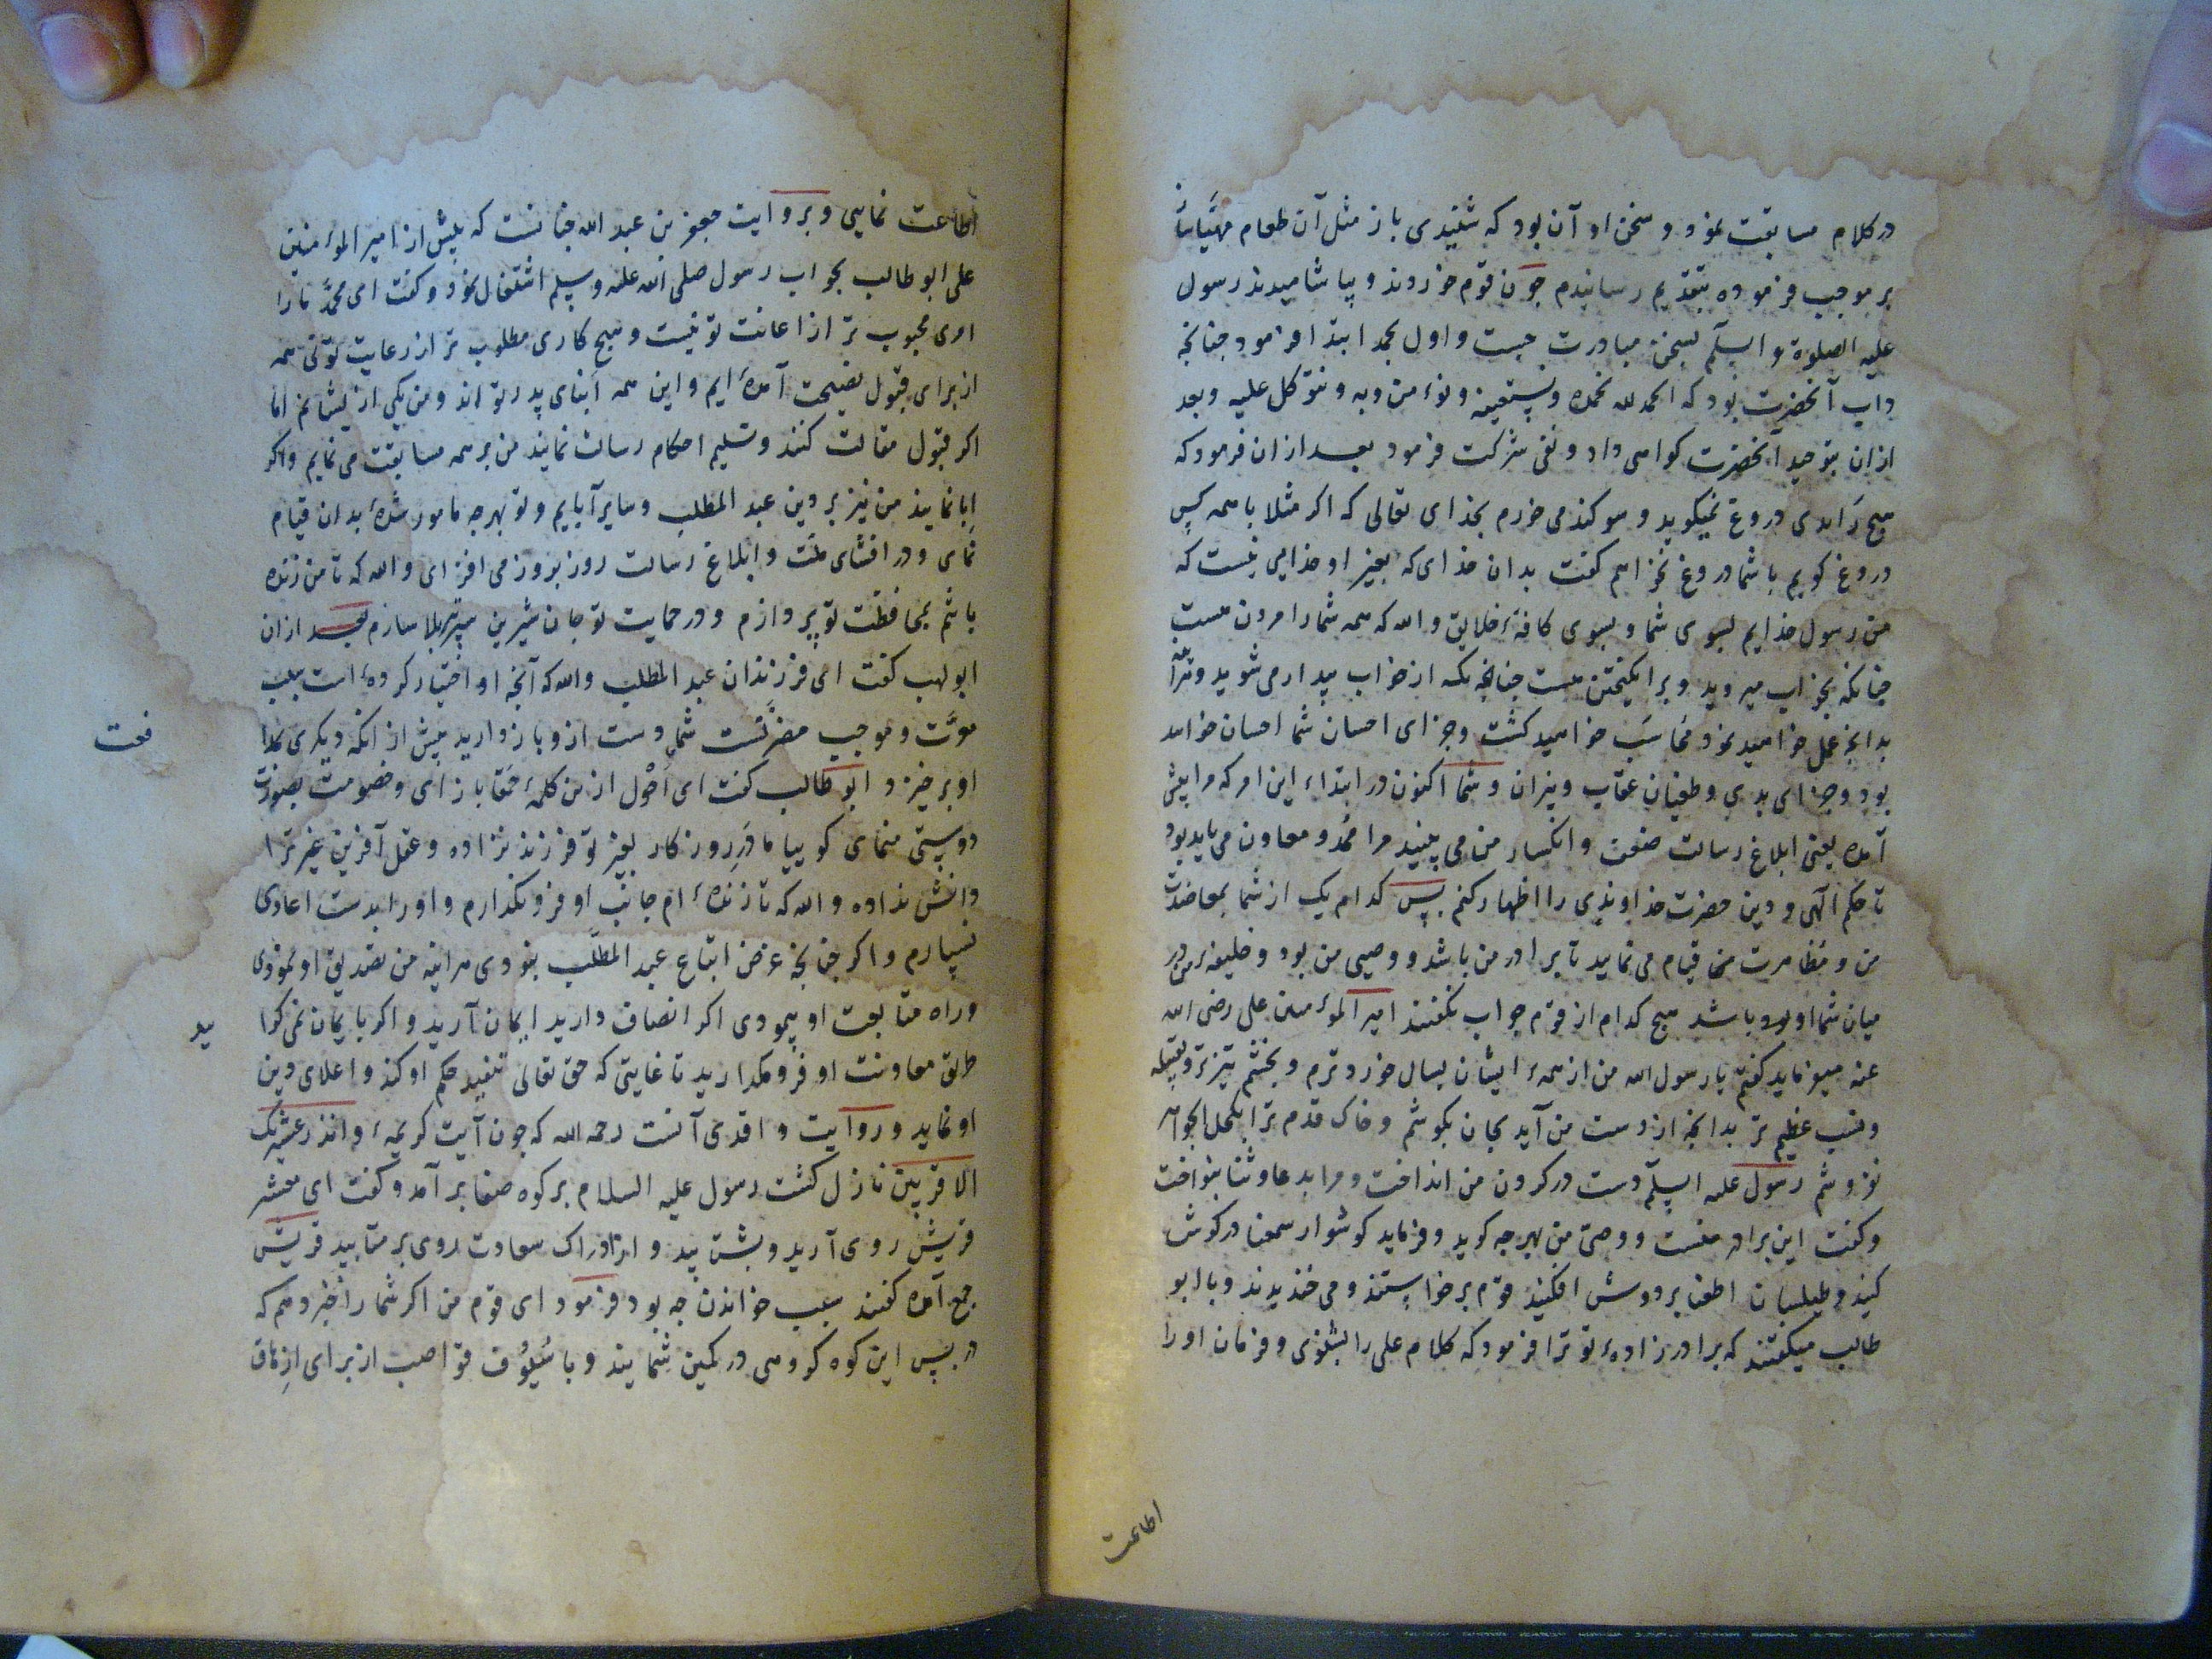 در کلام مسابقت نمود و سخن او آن بود که شنیدی باز مثل آن طعام مهیا ساز
بر موجب فرموده بتقدیم رسانیدم جون قوم خوردند و بیاشامیدند رسول
علیه الصلوة و السلم بسخن مبادرت جست و اول بحمد ابتدا فرمود جنانجه
داب آنحضرت بود که الحمد لله نحمده و نستعینه و نؤمن به و نتوکل علیه و بعد
از ان بتوحید آنحضرت کواهی داد و نفی شرکت فرمود بعد از ان فرمود که
هیج رایدی دروغ نمیکوید و سوکند می خورم بخدای تعالی که اکر مثلا با همه کس
دروغ کویم با شما دروغ نخواهم کفت بدان خدای که بغیر او خدایی نیست که
من رسول خدایم بسوی شما و بسوی کافهٔ خلایق و الله که همه شما را مردن هست
جنانکه بخواب میروید و برانکیختن هست جنانجه که از خواب بیدار می شوید و
بدانجه عمل خواهید نمود محاسب خواهید کشت و جزای احسان شما احسان خواهد
بود و جزای بدی و طغیان عقاب و نیران و شما اکنون در ابتداء این امر که مرا پیش
آمده یعنی ابلاغ رسالت ضعف و انکسار من می بینید مرا ممد و معاون می باید بود
تا حکم الهی و دین حضرت خداوندی را اظهار کنم بس کدام یک از شما بمعاضدت
من و مظاهرت من قیام می نماید تا برادر من باشد و وصی من بود و خلیفهٔ من در
میان شما او بود باشد هیج کدام از قوم جواب نکفتند امیر المؤمنین علی رضی الله
عنه میفرماید کفتم یا رسول الله من از همهٔ ایشان بسال خوردترم و بخشم تیزتر و بقبیله
و نسب عظیم تر بدانجه از دست من آید بجان بکوشم و خاک قدم ترا بکحل الجواهر
نفروشم رسول علیه السلم دست در کردن من انداخت و مرا بدعا و ثنا بنواخت
و کفت این برادر منست و وصی من بهرجه کوید و فرماید کوشوار سمعنا در کوش
کنید و طیلسان اطعنا بر دوش افکنید قوم برخواستند و می خندیدند و با ابو
طالب میکفتند که برادرزادهٔ تو ترا فرمود که کلام علی را بشنوی و فرمان او را
اطاعت
اطاعت نمایی و بروایت جعفر بن عبد الله جنانست که بیش از امیر المؤمنین
علی ابو طالب بجواب رسول صلی الله علیه و سلم اشتغال نمود و کفت ای محمد ما را
امری محبوب تر از اعانت تو نیست و هیج کاری مطلوب تر از رعایت تو نی همه
از برای قبول نصیحت آمدهٔ ایم و این همه ابنای پدر تو اند و من یکی از یشانم اما
اکر قبول مقالت کنند و تسلیم احکام رسالت نمایند من بر همه مسابقت می نمایم و اکر
ابا نمایند من نیز بر دین عبد المطلب و سایر آبایم و تو بهرجه مامور شدهٔ بدان قیام
نمای و در افشای ملت و ابلاغ رسالت روز بروز می افزای و الله که تا من زنده
باشم بمحافظت تو پردازم و در حمایت تو جان شیرین سپر بلا سازم بعد از ان
ابو لهب کفت ای فرزندان عبد المطلب والله که آنجه او اختیار کردهٔ است سبب
موت و موجب مضرتست شما دست ازو باز دارید بیش از انکه دیکری
فعت
او برخیزد ابو طالب کفت ای احول ازین کلمهٔ حمقا باز ای و خصومت بصورت
دوستی منمای کوییا مادر روزکار بغیر تو فرزند نزاده و عقل آفرین غیر ترا
دانش نداده و الله که تا زندهٔ ام جانب او فرو نکذارم و او را بدست اعادی
نسپارم و اکر جنانجه غرض اتباع عبد المطلب بنودی هراینه من تصدیق او نمودی
و راه متابعت او پیمودی اکر انصاف دارید ایمان آرید و اکر بایمان نمی کرا
ید
طریق معاونت او فرو مکذارید تا غایتی که حق تعالی تنفیذ حکم او کند و اعلای دین
او نماید و روایت واقدی آنست رحمه الله که جون آیت کریمهٔ و انذر عشیرتک
الاقربین نازل کشت رسول علیه السلام بر کوه صفا بر آمد و کفت ای معشر
قریش روی آرید و بشتابید و از ادراک سعادت روی بر متابید قریش
جمع آمده کفتند سبب خواندن جه بود فرمود ای قوم من اکر شما را خبر دهم که
در پس این کوه کروهی در کمین شمایند و با سیوف قواضب از برای ازهاق